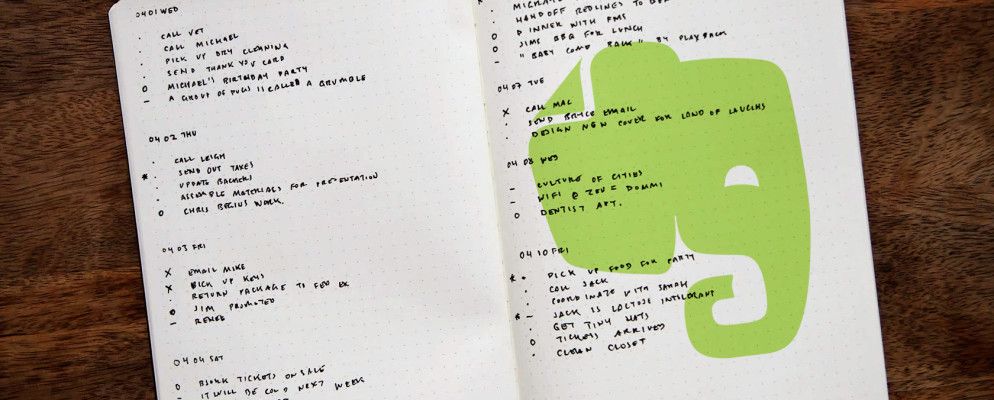 04 01 WED
· CALL VET
· CALL MICHAEL
· PICK UP DRY CLEANING
· SEND THANK YOU CARD
O MICHAEL'S BIRTHDAY PARTY
– A GROUP OF PUGS IS CALLED A GRUMBLE
04 02 THU
· CALL LEIGH
* · SEND OUT TAXES
· UPDATE BACKERS
· ASSEMBLE MATERIALS FOR PRESENTATION
O CHRIS BEGINS WORK.
04 03 FRI
X EMAIL MIKE
X PICK UP KEYS
· RETURN PACKAGE TO FED EX
O JIM PROMOTED
– RENEE
04 04 SAT
O BJORK TICKETS ON SALE
– IT WILL BE COLD NEXT WEEK
· HANDOFF REDLINES TO
O DINNER WITH FMS
O JIMS BBQ FOR LUNCH
– "BABY COME BACK" BY PLAYBACK
04 07 TUE
X CALL MAC
· SEND BRYCE EMAIL
· DESIGN NEW COVER FOR LAND OF LAUGHS
04 08 WED
– CULTURE OF CITIES
– WIFI @ ZEUS = DOMMI
O DENTIST APT.
04 10 FRI
* · PICK UP FOOD FOR PARTY
· CALL JACK
· COORDINATE WITH SARAH
* – JACK IS LACTOSE INTOLERANT
· GET TINY HATS
O TICKETS ARRIVED
· CLEAN CLOSET